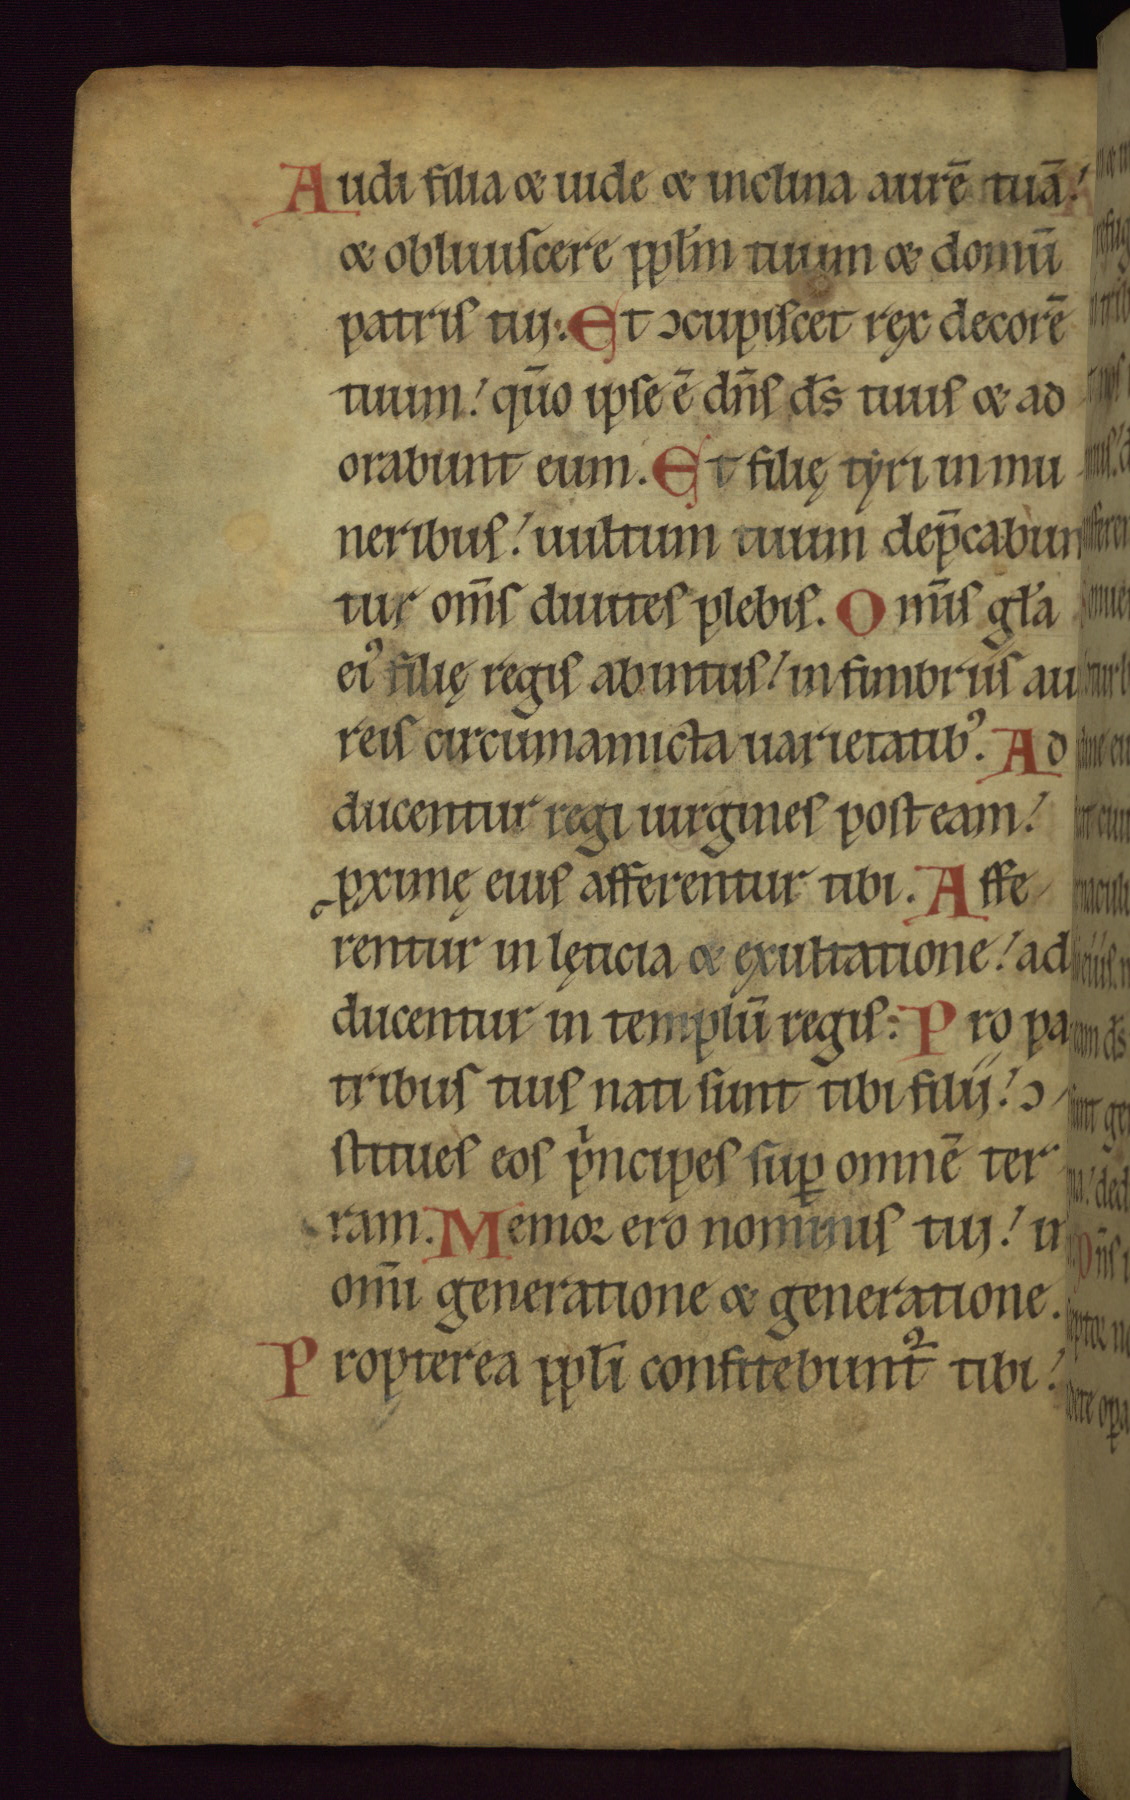 Audi filia & uide & inclina aurē tuā!
& obliuiscere pp̄lm tuum & domū
patris tui: Et ɔcupiscet rex decorē
tuum! qūo ipse ē dn̄s d̄s tuus & ad
orabunt eum. Et filię tyri in mu
neribus! uultum tuum dep̄cabun
tur om̄s diuites plebis. Omīs gl̄a
ei᾽ filię regis ab intus! in fimbriis au
reis circumamicta uarietatib᾽. Ad
ducentur regi uirgines post eam!
ꝓximę eius afferentur tibi. Affe
rentur in lęticia & exultatione! ad
ducentur in templū regis: Pro pa
tribus tuis nati sunt tibi filii! ɔ
stitues eos pͥncipes suꝑ omnē ter
ram. Memor ero nominis tui! in
omi generatione & generatione.
Propterea pp̄li confitebunt᷑ tibi!